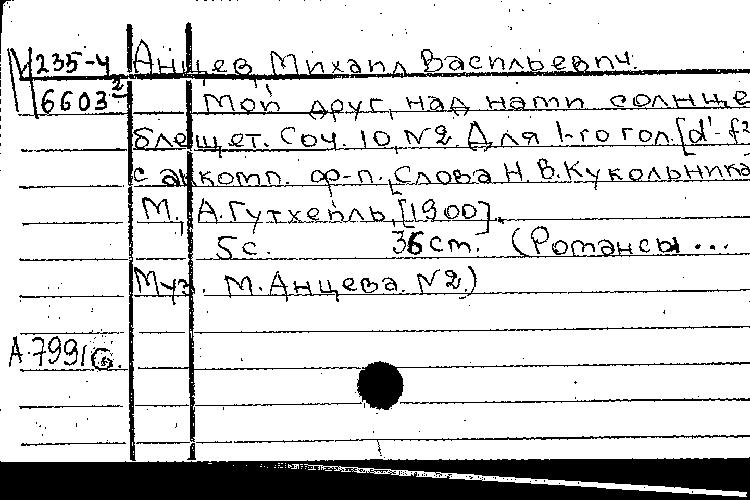 М 235-4 Анцев, Михаил Васильевич.
6603² Мой друг, над нами солнце
блещет. Соч. 10, №2. Для 1-го гол. [d'-f²
с аккомп. ф-п., Слова Н. В. Кукольника
М., А. Гутхейль, [1900].
5 с. 36 см. (Романсы ...
Муз. М. Анцева. №2.)
А.7991